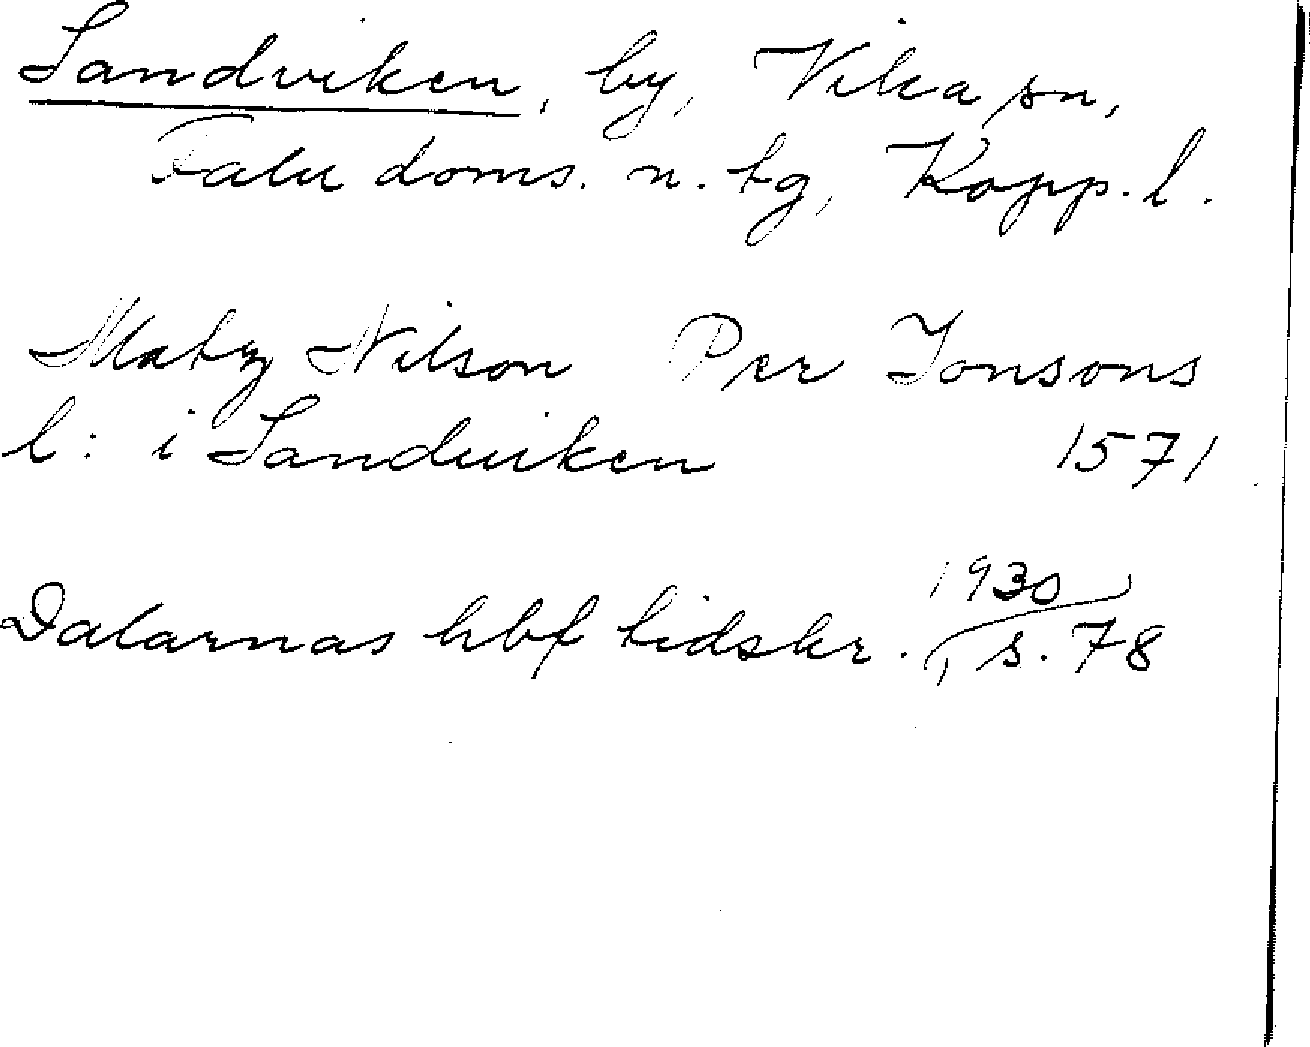 Sandviken, by, Vika sn,
Falu doms. n. tg, Kopp. l.
Matz Nilson Per Jonsons
l: i Sanduiken 1571
Dalarnas hbf tidskr. 1930, s. 78